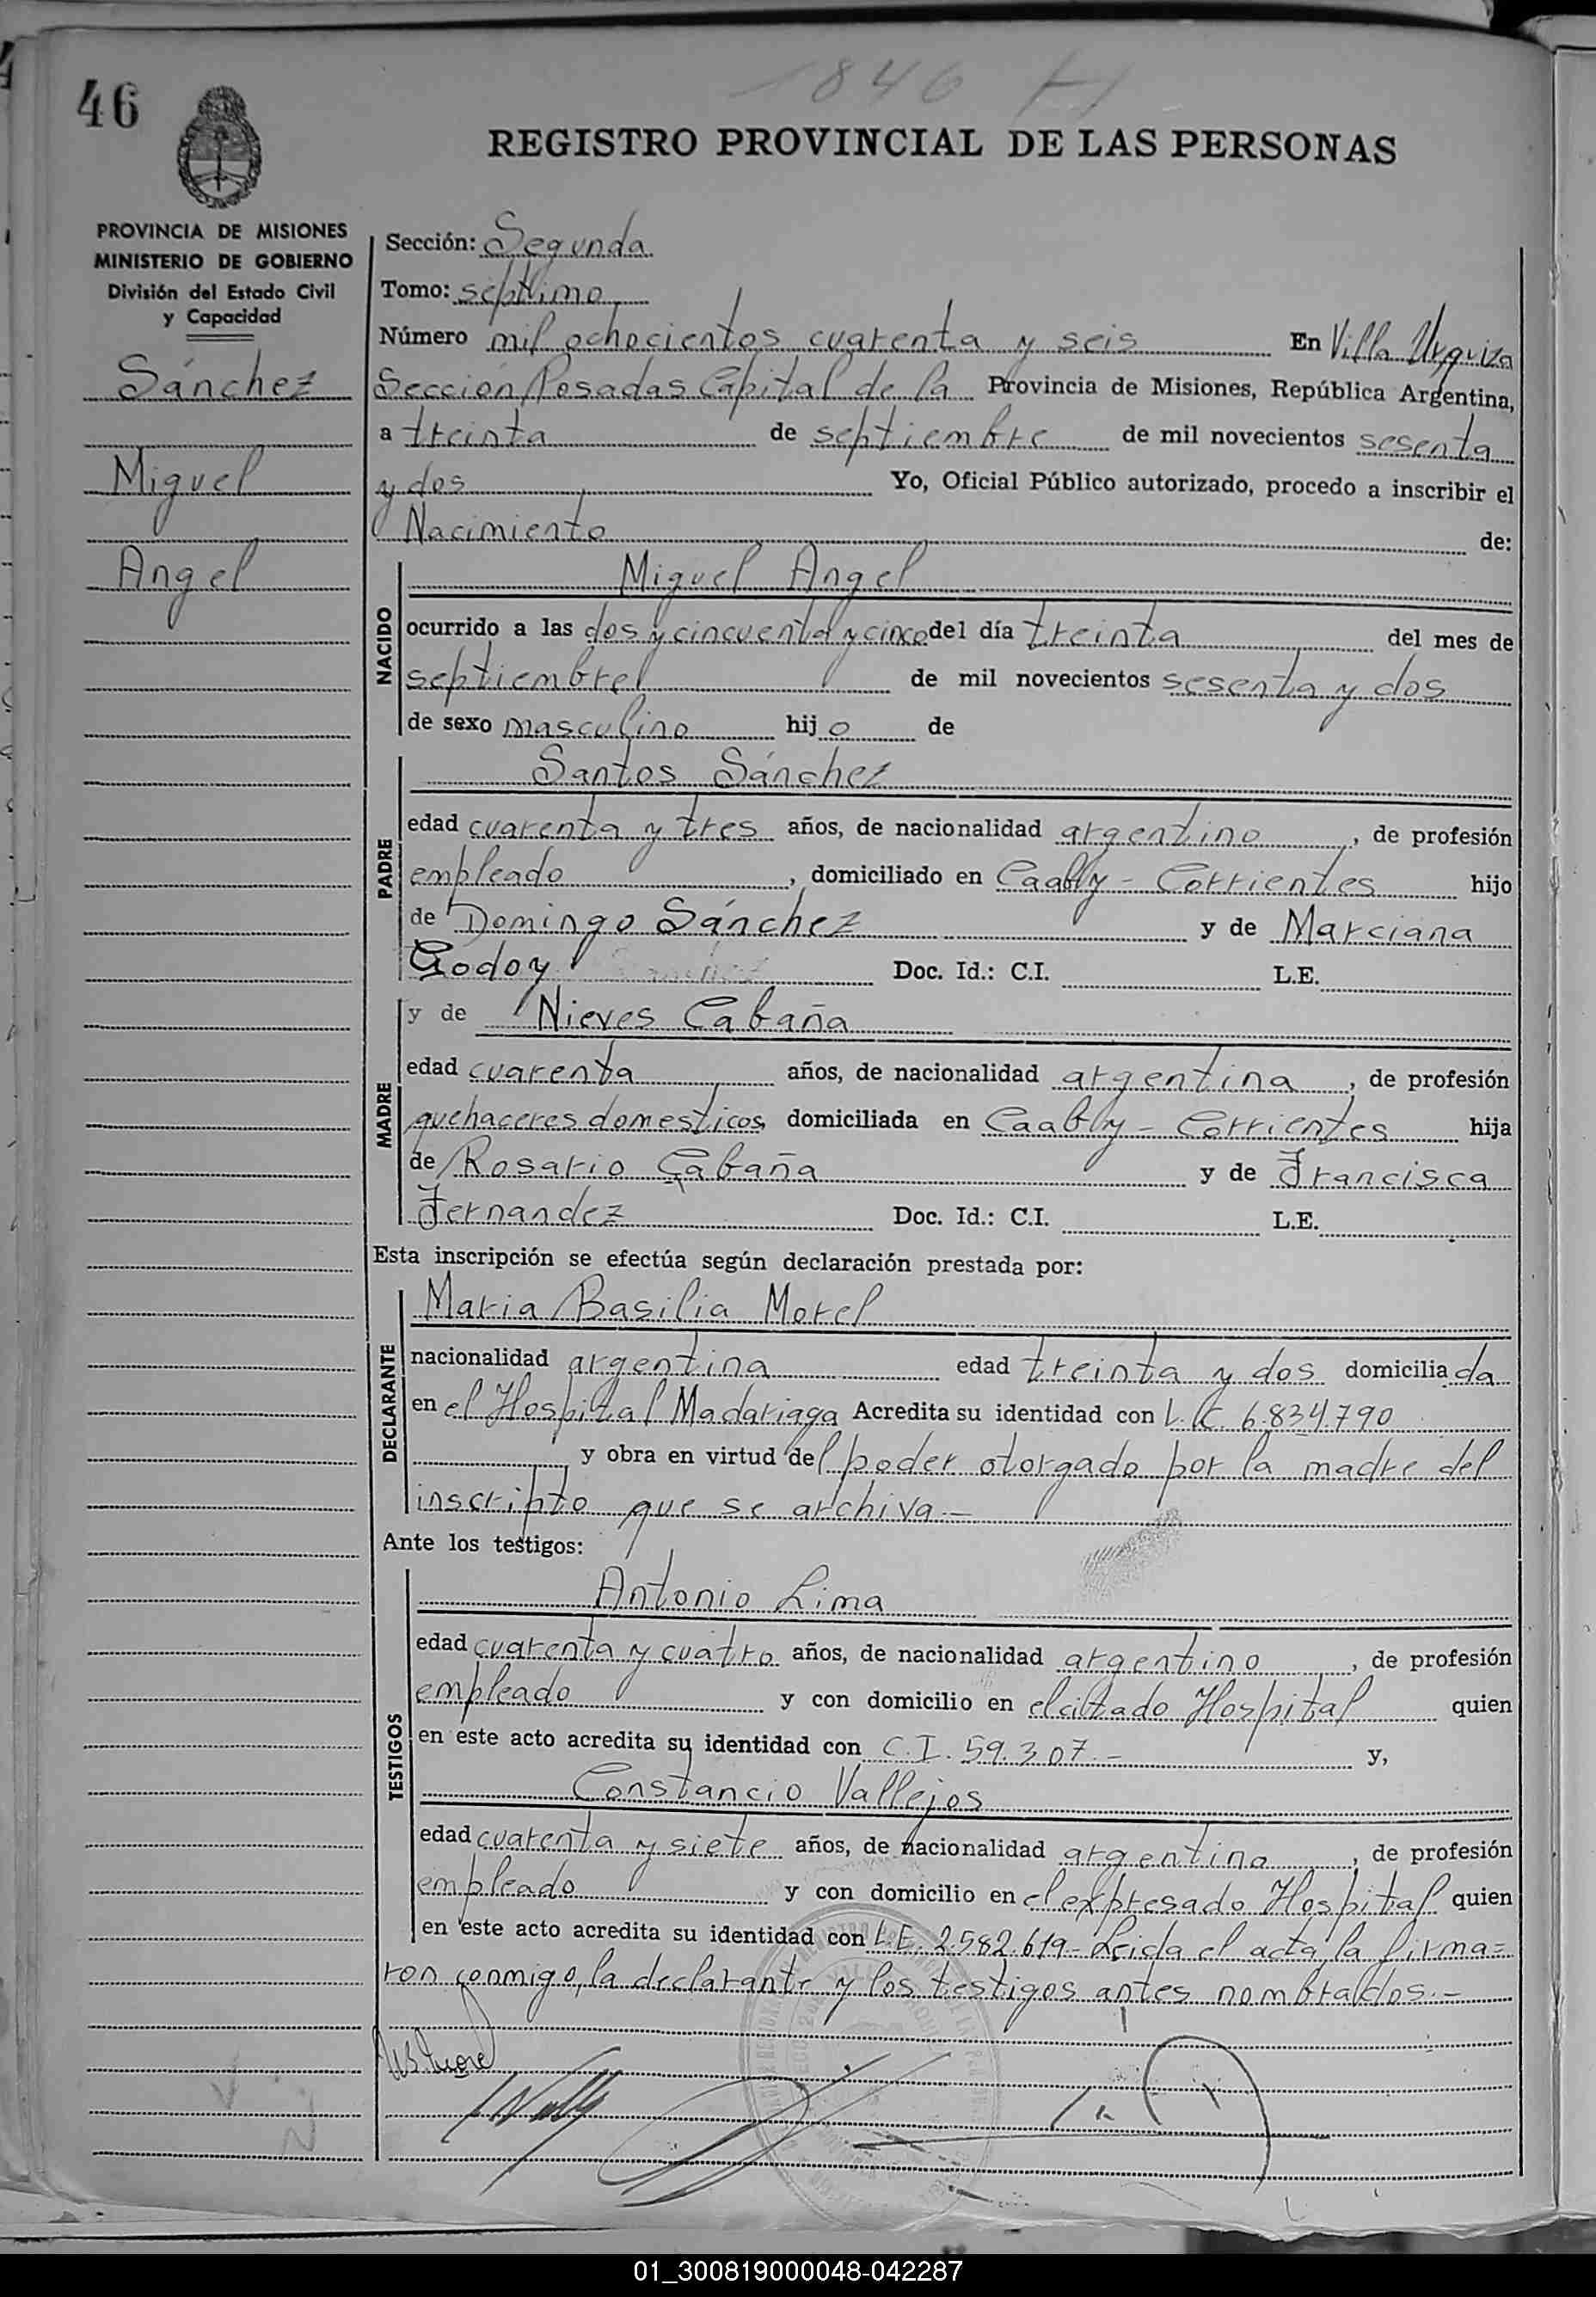 1846 H
46
REGISTRO PROVINCIAL DE LAS PERSONAS
PROVINCIA DE MISIONES
MINISTERIO DE GOBIERNO
División del Estado Civil
y Capacidad
Sánchez
Miguel
Angel
Sección: Segunda
Tomo: septimo
Número mil ochocientos cuarenta y seis En Villa Urquiza
Sección Posadas Capital de la Provincia de Misiones, República Argentina,
a treinta de septiembre de mil novecientos sesenta
y dos Yo, Oficial Público autorizado, procedo a inscribir el
Nacimiento de:
NACIDO
Miguel Angel
ocurrido a las dos y cincuenta y cinco del día treinta del mes de
septiembre de mil novecientos sesenta y dos
de sexo masculino hijo de
PADRE
Santos Sánchez
edad cuarenta y tres años, de nacionalidad argentino, de profesión
empleado, domiciliado en Caably - Corrientes hijo
de Domingo Sánchez y de Marciana
Godoy Doc. Id.: C.I. L.E.
MADRE
y de Nieves Cabaña
edad cuarenta años, de nacionalidad argentina, de profesión
quehaceres domesticos, domiciliada en Caably - Corrientes hija
de Rosario Cabaña y de Francisca
Fernandez Doc. Id.: C.I. L.E.
Esta inscripción se efectúa según declaración prestada por:
DECLARANTE
Maria Basilia Morel
nacionalidad argentina edad treinta y dos domiciliada
en el Hospital Madariaga Acredita su identidad con L.C. 6.834.790
y obra en virtud del poder otorgado por la madre del
inscripto que se archiva.-
Ante los testigos:
TESTIGOS
Antonio Lima
edad cuarenta y cuatro años, de nacionalidad argentino, de profesión
empleado y con domicilio en el citado Hospital quien
en este acto acredita su identidad con C.I. 59.307.- y,
Constancio Vallejos
edad cuarenta y siete años, de nacionalidad argentino, de profesión
empleado y con domicilio en el expresado Hospital quien
en este acto acredita su identidad con L.E. 2.582.619- Leida el acta, la firma=
ron conmigo, la declarante y los testigos antes nombrados.-
01_300819000048-042287